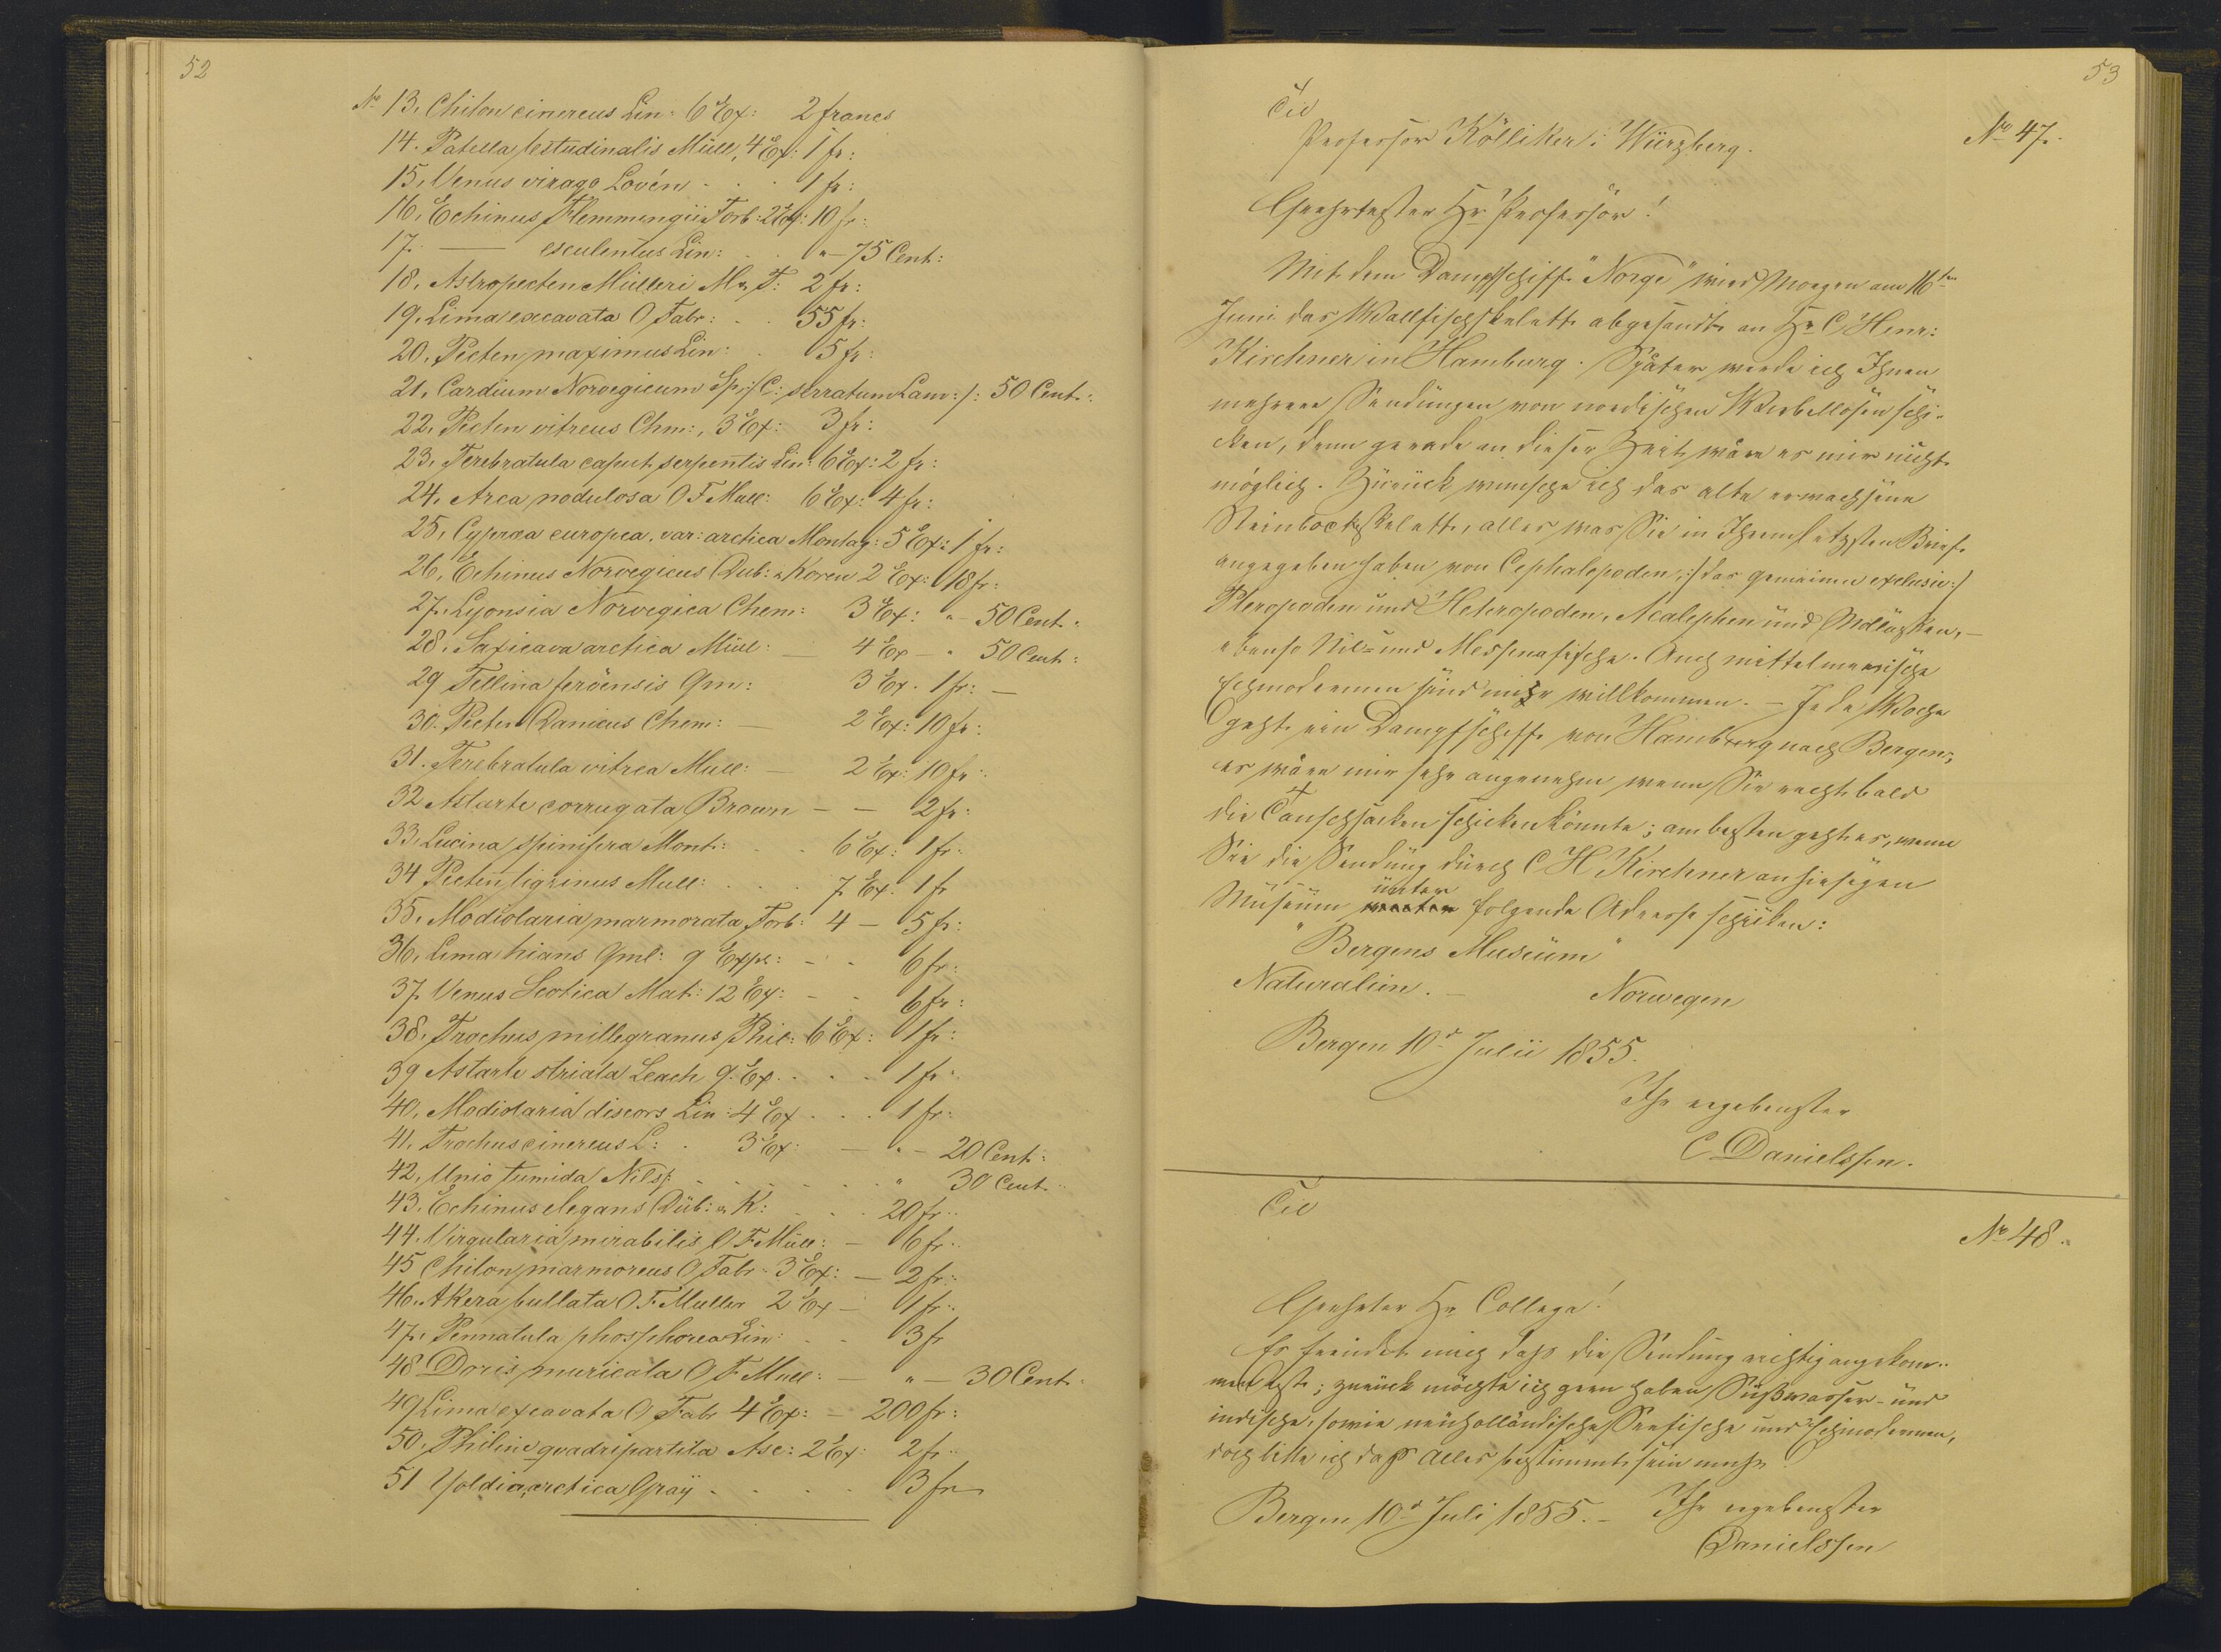 52
No 13, Chiton cinereus Lin: 6 Ex: 2 francs
14. Patella testudinalis Müll, 4 Ex: 1 fr:
15, Venus virago Lovén . . . 1 fr:
16, Echinus Flemmingii Forb: 2 Ex: 10 fr:
17. — esculentus Lin: . . " — 75 Cent:
18, Astropecten Mülleri M & T: 2 fr:
19, Lima excavata O Fabr: . . 55 fr:
20, Pecten maximus Lin: . 5 fr:
21, Cardium Norvegicum Sp: /: C: serratum Lam: /: 50 Cent:
22, Pecten vitreus Chm:, 3 Ex: 3 fr:
23, Terebratula caput serpentis Lin: 6 Ex: 2 fr:
24, Arca nodulosa O F Mull: 6 Ex: 4 fr:
25, Cypræa europea, var: arctica Montag: 5 Ex: 1 fr:
26, Echinus Norvegicus Dub: & Koren 2 Ex: 18 fr:
27, Lyonsia Norvegica Chem: 3 Ex: " — 50 Cent:
28, Saxicava arctica Müll: — 4 Ex — " 50 Cent:
29 Tellina feröensis Gm: 3 Ex. 1 fr: —
30. Pecten Danicus Chem: — 2 Ex: 10 fr:
31. Terebratula vitrea Mull: — 2 Ex: 10 fr:
32 Astarte corrugata Brown — — 2 fr:
33, Lucina spinifera Mont: . . 6 Ex: 1 fr:
34 Pecten tigrinus Mull: . . . 7 Ex: 1 fr
35, Modiolaria marmorata Forb: 4 — 5 fr:
36, Lima hians Gml: 9 Expl: - - 6 fr:
37, Venus Scotica Mat: 12 Ex: - - 6 fr:
38, Trochus millegranus Phil: 6 Ex: 1 fr:
39 Astarte striata Leach 9 Ex. . . . 1 fr:
40, Modiolaria discors Lin: 4 Ex . . . 1 fr:
41, Trochus cinereus L: . 3 Ex: — " — 20 Cent:
42, Unio tumida Nilss: . . . . . " 30 Cent:
43. Echinus elegans Düb: & K: . . . 20 fr:
44. Virgularia mirabilis O F Müll: — 6 fr:
45 Chiton marmoreus O Fabr. 3 Ex: — 2 fr:
46. Akera bullata O F Muller 2 Ex — 1 fr:
47. Pennatula phosphorea Lin: . . 3 fr
48 Doris muricata O F Mull: — " — 30 Cent:
49 Lima excavata O Fabr 4 Ex: — 200 fr:
50. Philine quadripartita Asc: 2 Ex: 2 fr:
51 Yoldia arctica Gray . . . . 3 fr
53
Til
No 47.
Professor Kölliker i Würzberg.
Geehrtester Hr Professor!
Mit dem Dampfschiff "Norge" wird Morgen am 16ten
Juni das Wallfischskelett abgesandt an Hr C Henr:
Kirchner in Hamburg. Später werde ich Ihnen
mehrere Sendungen von nordischen Wirbellosen schi-
cken, denn gerade an dieser Zeit wäre es mir nicht
möglich. Zurück wünsche ich das alte erwachsene
Steinbockskelett, alles was Sie in Ihrem letzten Briefe
angegeben haben von Cephalopoden, /: das gemeine exclusiv :/
Pteropoden und Heteropoden, Acalephen und Mollusken, —
ebenso Nil- und Messinafische. Auch mittelmeerische
Echinodermen sind mihr willkommen. — Jede Woche
geht ein Dampfschiff von Hamburg nach Bergen;
es wäre mir sehr angenehm wenn Sie recht bald
die Tauschsacken schicken könnte; am besten geht es, wenn
Sie die Sendung durch C H Kirchner an hiesigen
Museum unter folgende Adresse schicken:
"Bergens Museum"
Naturalien. — Norwegen
Bergen 10d Julii 1855.
Ihr ergebenster
C Danielssen.
Til
No 48.
Geehrter Hr Collega!
Es freudet mich dass die Sendung richtig angekom-
men ist; zurück möchte ich gern haben Süßwasser- und
indische, sowie neuholländische Seefische und Echinodermen,
doch bitte ich dass Alles bestimmt sein muss
Bergen 10d Juli 1855. — Ihr ergebenster
Danielssen